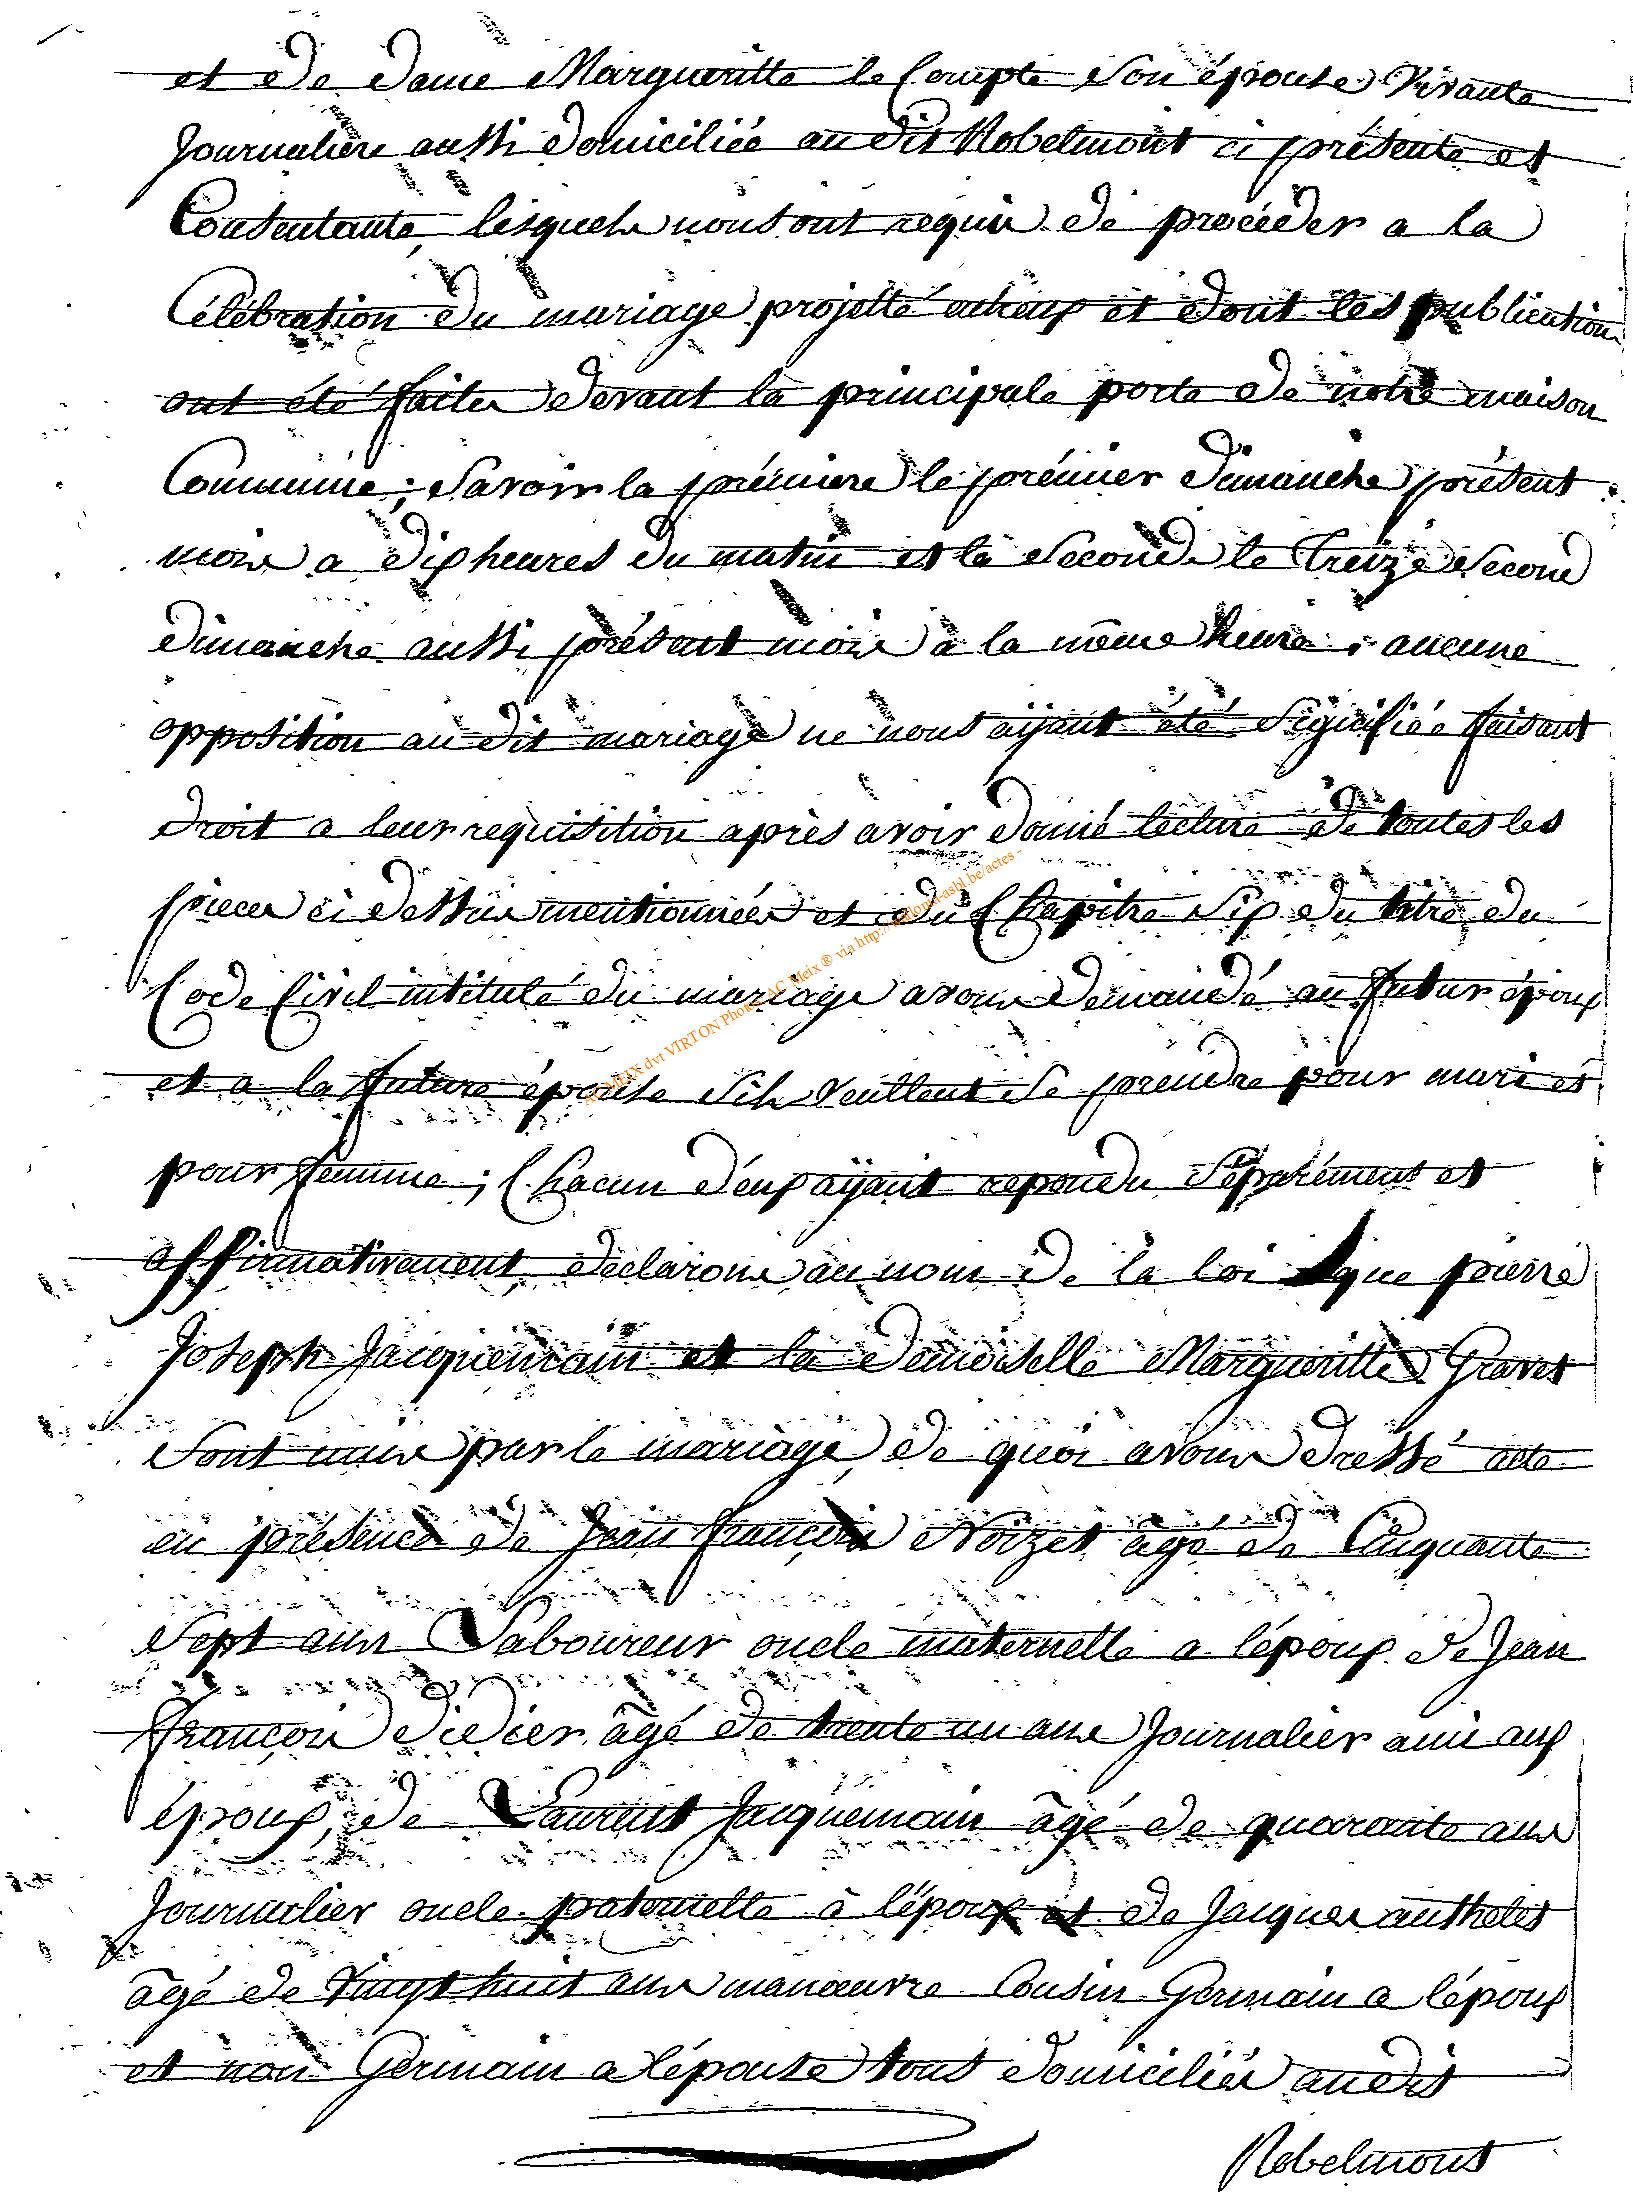 et de dame Margueritte le Compte son épouse vivante
Journaliere aussi domiciliée au dit Robelmont ci présente et
Consentante, lesquels nous ont requis de procéder a la
Célébration du mariage projetté entreux et dont les publication
ont été faites devant la principale porte de notre maison
Commune; savoir la prémiere le prémier dimanche présent
mois a dix heures du matin et la seconde le treize second
dimanche aussi présent mois à la même heure; aucune
opposition au dit mariage ne nous aÿant été signifiée faisant
droit a leur requisition après avoir donné lecture de toutes les
pieces ci dessus mentionnées et du Chapitre six du titre du
Code Civil intitulé du mariage avons demandé au futur époux
et a la future épouse sils veullent se prendre pour mari et
pour femme; Chacun d'eux aÿant repondu séparément et
affirmativement, déclarons au nom de la loi que pierre
Joseph Jacquemain et la demoiselle Margueritte Gravet
sont unis par le mariage, de quoi avons dressé acte
en présence de Jean françois Noizet âgé de Cinquante
sept ans Laboureur oncle maternelle a lépoux de Jean
françois didier âgé de trente un ans Journalier ami aux
époux, de Laurent Jacquemain âgé de quarante ans
Journalier oncle paternelle à lépoux et de Jacques
âgé de vingt huit ans manœuvre Cousin Germain a lépoux
et non Germain a lépouse tous domiciliés audit
Robelmont
MEIX dvt VIRTON Photos AC Meix ® via http:// asbl.be/actes -